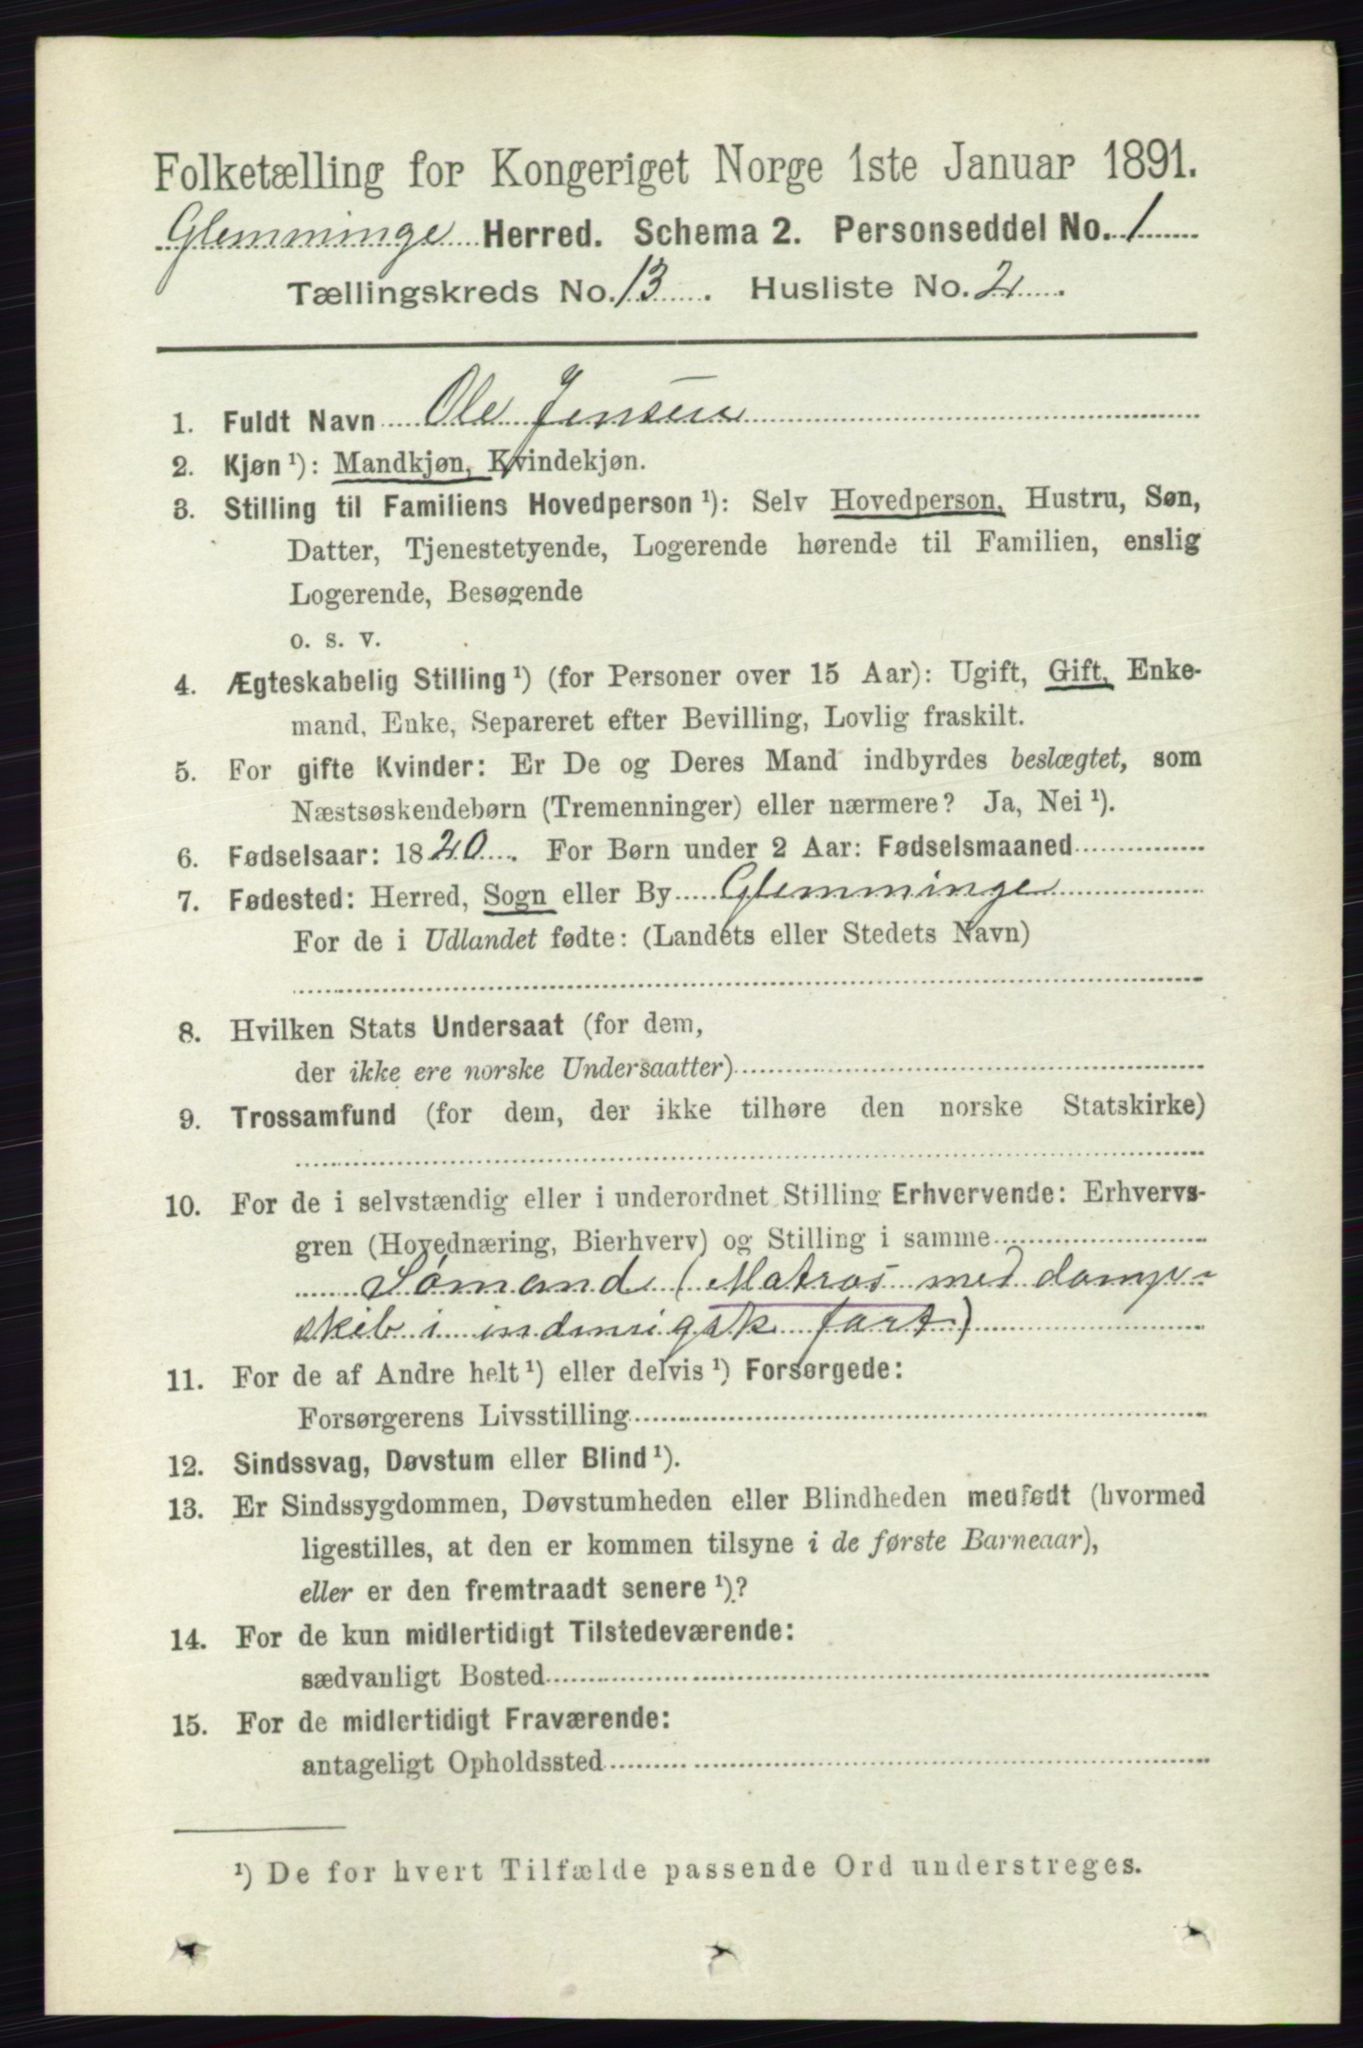 Folketælling for Kongeriget Norge 1ste Januar 1891.
Glemminge Herred. Schema 2. Personseddel No. 1
Tællingskreds No. 13. Husliste No. 2.
1. Fuldt Navn Ole Jensen
2. Kjøn ¹): Mandkjøn, Kvindekjøn.
3. Stilling til Familiens Hovedperson ¹): Selv Hovedperson, Hustru, Søn,
Datter, Tjenestetyende, Logerende hørende til Familien, enslig
Logerende, Besøgende
o. s. v.
4. Ægteskabelig Stilling ¹) (for Personer over 15 Aar): Ugift, Gift, Enke-
mand, Enke, Separeret efter Bevilling, Lovlig fraskilt.
5. For gifte Kvinder: Er De og Deres Mand indbyrdes beslægtet, som
Næstsøskendebørn (Tremenninger) eller nærmere? Ja, Nei ¹).
6. Fødselsaar: 1820. For Børn under 2 Aar: Fødselsmaaned
7. Fødested: Herred, Sogn eller By Glemminge
For de i Udlandet fødte: (Landets eller Stedets Navn)
8. Hvilken Stats Undersaat (for dem,
der ikke ere norske Undersaatter)
9. Trossamfund (for dem, der ikke tilhøre den norske Statskirke)
10. For de i selvstændig eller i underordnet Stilling Erhvervende: Erhvervs-
gren (Hovednæring, Bierhverv) og Stilling i samme
Sømand (Matros med damp-
skib i indenrigsk fart)
11. For de af Andre helt ¹) eller delvis ¹) Forsørgede:
Forsørgerens Livsstilling
12. Sindssvag, Døvstum eller Blind ¹).
13. Er Sindssygdommen, Døvstumheden eller Blindheden medfødt (hvormed
ligestilles, at den er kommen tilsyne i de første Barneaar),
eller er den fremtraadt senere ¹)?
14. For de kun midlertidigt Tilstedeværende:
sædvanligt Bosted
15. For de midlertidigt Fraværende:
antageligt Opholdssted
¹) De for hvert Tilfælde passende Ord understreges.